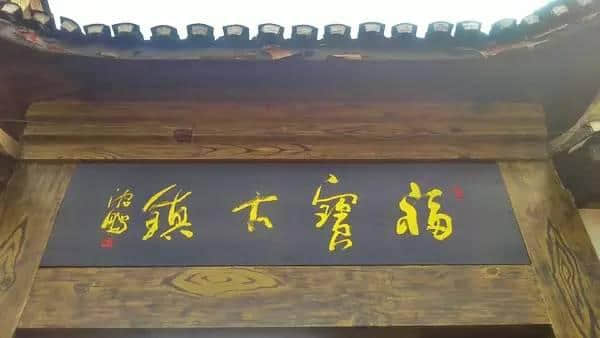 福寶古鎮
沈鵬